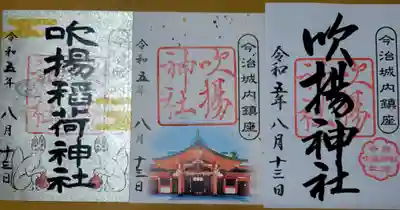 吹揚稲荷神社
令和五年 八月十三日
今治城内鎮座
吹揚
神社
令和五年 八月十三日
今治城内鎮座
吹揚神社
吹揚
神社
令和五年 八月十三日